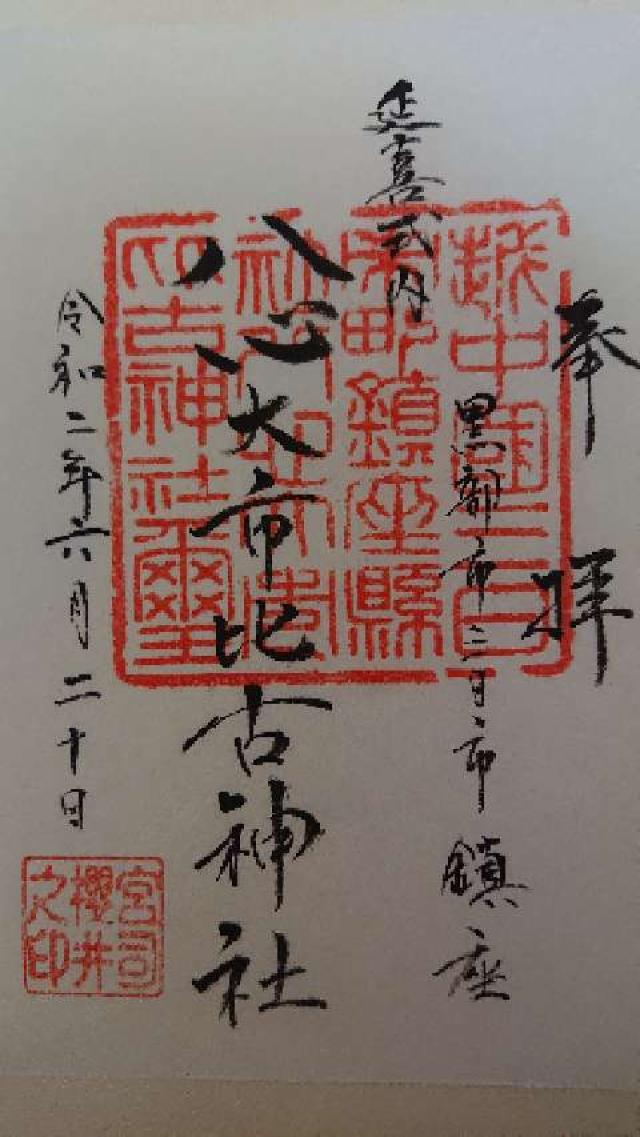 奉拝
延喜式内
黒部市三日市鎮座
八心大市比古神社
令和二年六月二十日
越中国三日
市町鎮座縣
社八心大市
比古神社璽
宮司
櫻井
之印